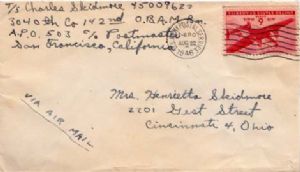 T/5 Charles Skidmore 45009622
3040th Co 142nd O.B.A.M. Bn.
A.P.O. 503 c/o Postmaster
San Francisco, California
AUG
1946
UNITED STATES POSTAGE
6¢
VIA AIR MAIL
Mrs. Henrietta Skidmore
2201 Gest Street
Cincinnati 4, Ohio